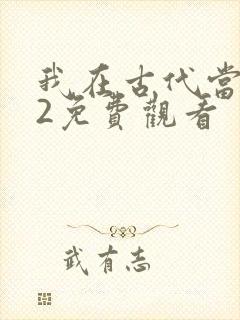 我在古代當
2免費觀看
武有志